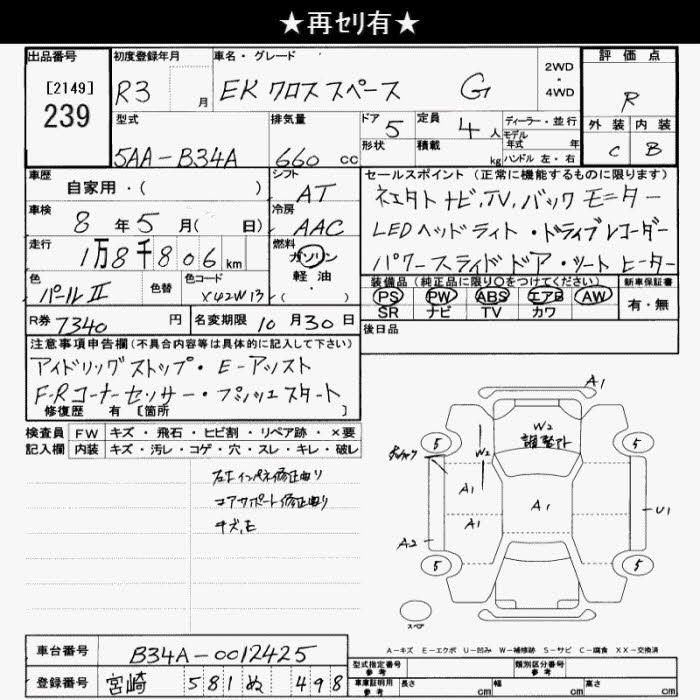 ★再セリ有★
出品番号
[2149]
239
初度登録年月
R3 月
車名・グレード
EK クロス スペース G
2WD
・
4WD
評価点
R
外装 内装
C B
型式
5AA-B34A
排気量
660 cc
ドア
5
形状
定員
4 人
積載
kg
ディーラー・並行
モデル
年式 年
ハンドル 左・右
車歴
自家用・( )
シフト
AT
車検
8 年 5 月( 日)
冷房
AAC
走行
1万8千806 km
燃料
ガソリン
軽油
・( )
色
パールⅡ
色替
色コード
X42W13
セールスポイント(正常に機能するものに限ります)
ネエタト ナビ,TV,バック モニター
LED ヘッド ライト・ドライブレコーダー
パワースライド ドア・シート ヒーター
装備品(純正品に限り○をつけてください)
PS PW ABS エアB AW
SR ナビ TV カワ
新車保証書
有・無
R券 7340 円
名変期限 10 月 30 日
後日品
注意事項申告欄(不具合内容等は具体的に記入して下さい)
アイドリングストップ・E-アシスト
F・Rコーナーセンサー・プッシュスタート
修復歴 有 [箇所 ]
検査員 FW キズ・飛石・ヒビ割・リペア跡・×要
記入欄 内装 キズ・汚レ・コゲ・穴・スレ・キレ・破レ
左右インパネ修正曲り
コアサポート修正曲り
キズ,E
A1
W2
調整跡
5 5
W2
A1
A1
A1
A2
U1
5 5
スペア
A-キズ E-エクボ U-凹み W-補修跡 S-サビ C-腐食 XX-交換済
車台番号
B34A-0012425
登録番号
宮崎 581 ぬ 498
型式指定番号
参考
類別区分番号
参考
車庫証明用
参考
長さ cm
幅 cm
高さ cm